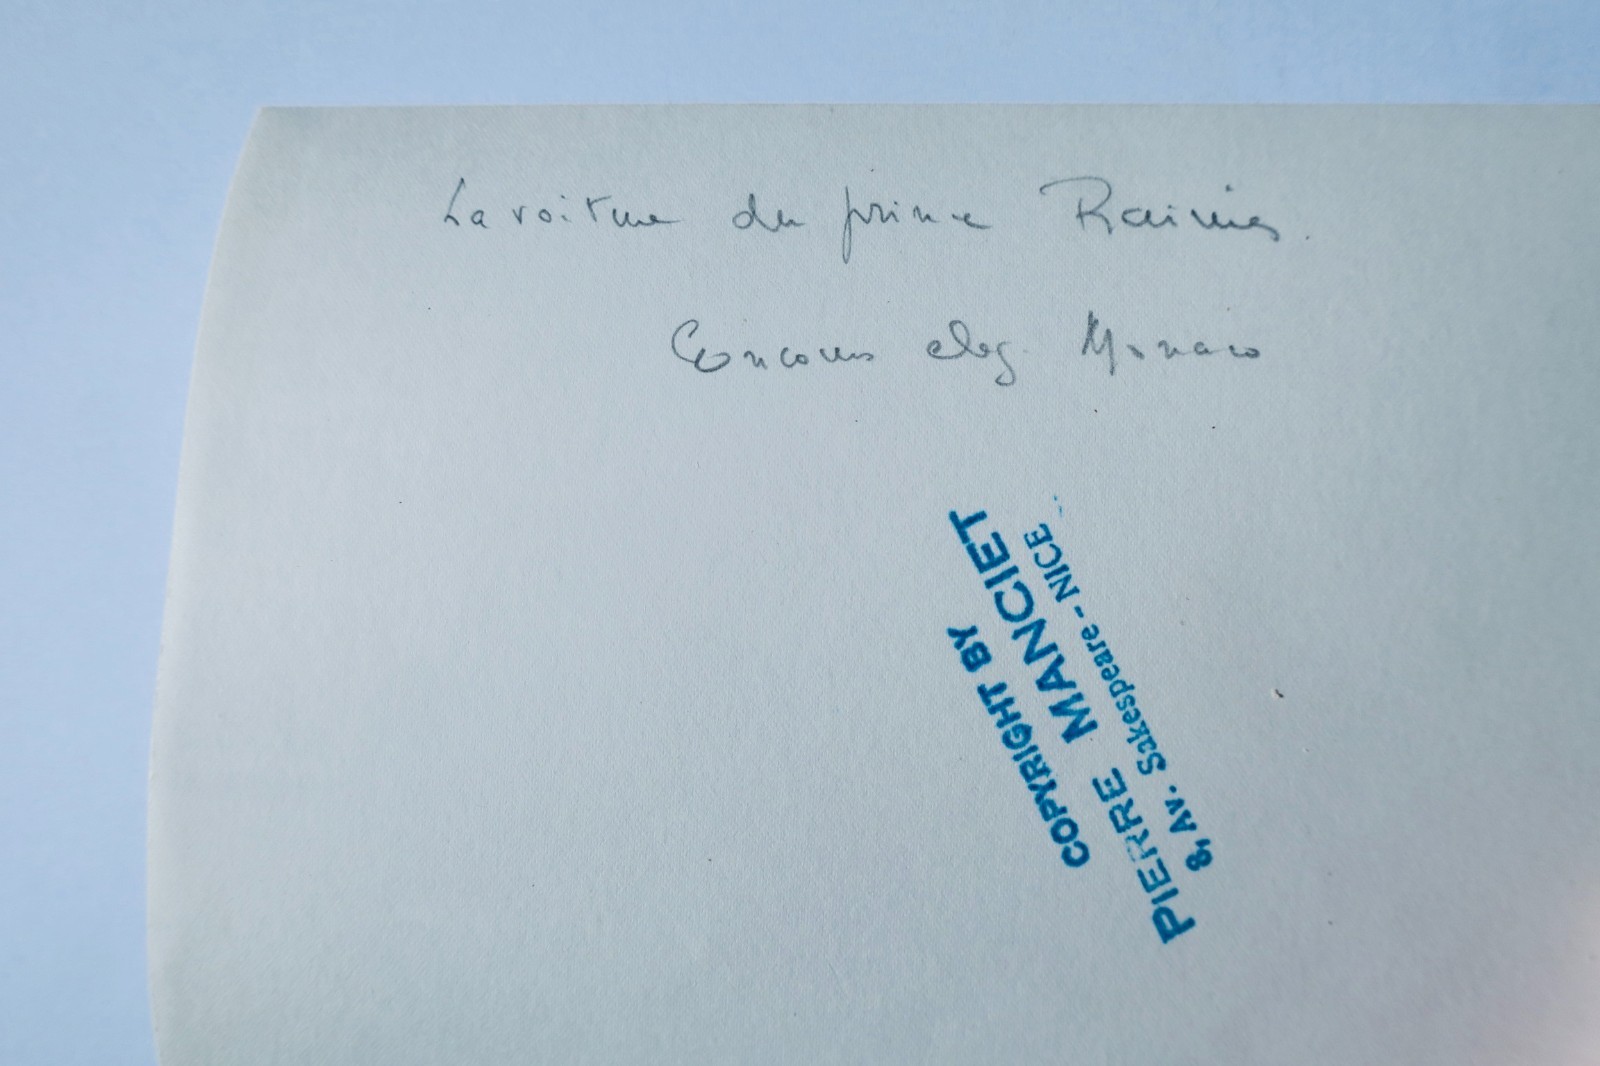 La voiture du prince Rainier.
Concours eleg. Monaco
COPYRIGHT BY
PIERRE MANCIET
8, Av. Sakespeare - NICE